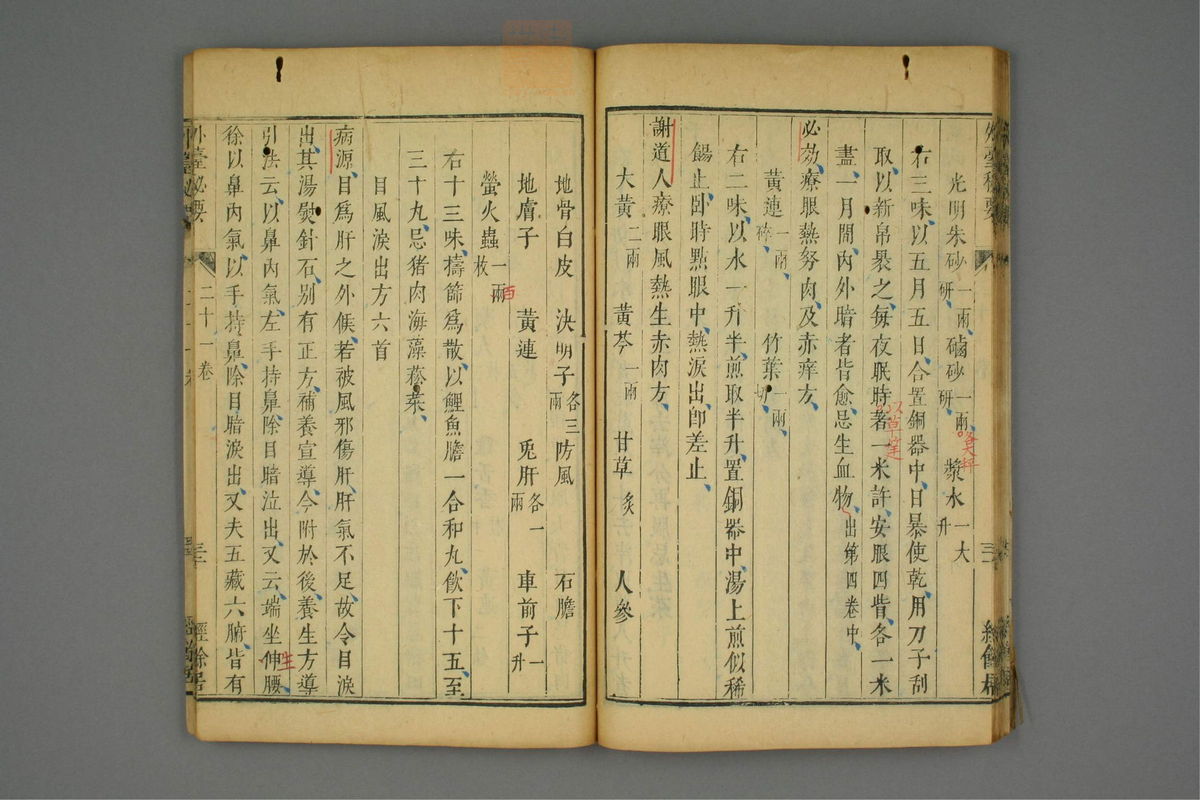 外臺秘要
光明朱砂一兩研 磠砂一兩研 漿水一大升
各大秤
右三味以五月五日合置銅器中日暴使乾用刀子刮
取以新帛裹之每夜眠時著一米許安眼四眥各一米
以草筳
盡一月間內外暗者皆愈忌生血物出第四卷中
必効療眼熱努肉及赤痒方
黃連一兩碎 竹葉一兩切
右二味以水一升半煎取半升置銅器中湯上煎似稀
餳止臥時點眼中熱淚出卽差止
謝道人療眼風熱生赤肉方
大黃二兩 黃芩一兩 甘草炙 人參
地骨白皮 決明子各三兩 防風 石膽
地膚子 黃連 兎肝各一兩 車前子一升
螢火蟲一兩枚
百
右十三味擣篩爲散以鯉魚膽一合和丸飲下十五至
三十丸忌猪肉海藻菘菜
目風淚出方六首
病源目爲肝之外候若被風邪傷肝肝氣不足故令目淚
出其湯熨針石别有正方補養宣導今附於後養生方導
引法云以鼻內氣左手持鼻除目暗泣出又云端坐伸腰
生
徐以鼻內氣以手持鼻除目暗淚出又夫五藏六腑皆有
外臺秘要 二十一卷 經餘居